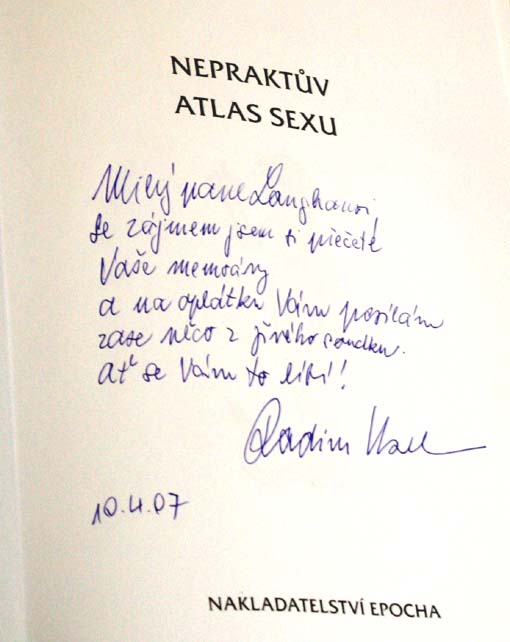 NEPRAKTŮV
ATLAS SEXU
Milý pane Langhansi,
se zájmem jsem si přečetl
Vaše memoáry
a na oplátku Vám posílám
zase něco z jiného soudku.
Ať se Vám to líbí!
Radim
10.4.07
NAKLADATELSTVÍ EPOCHA